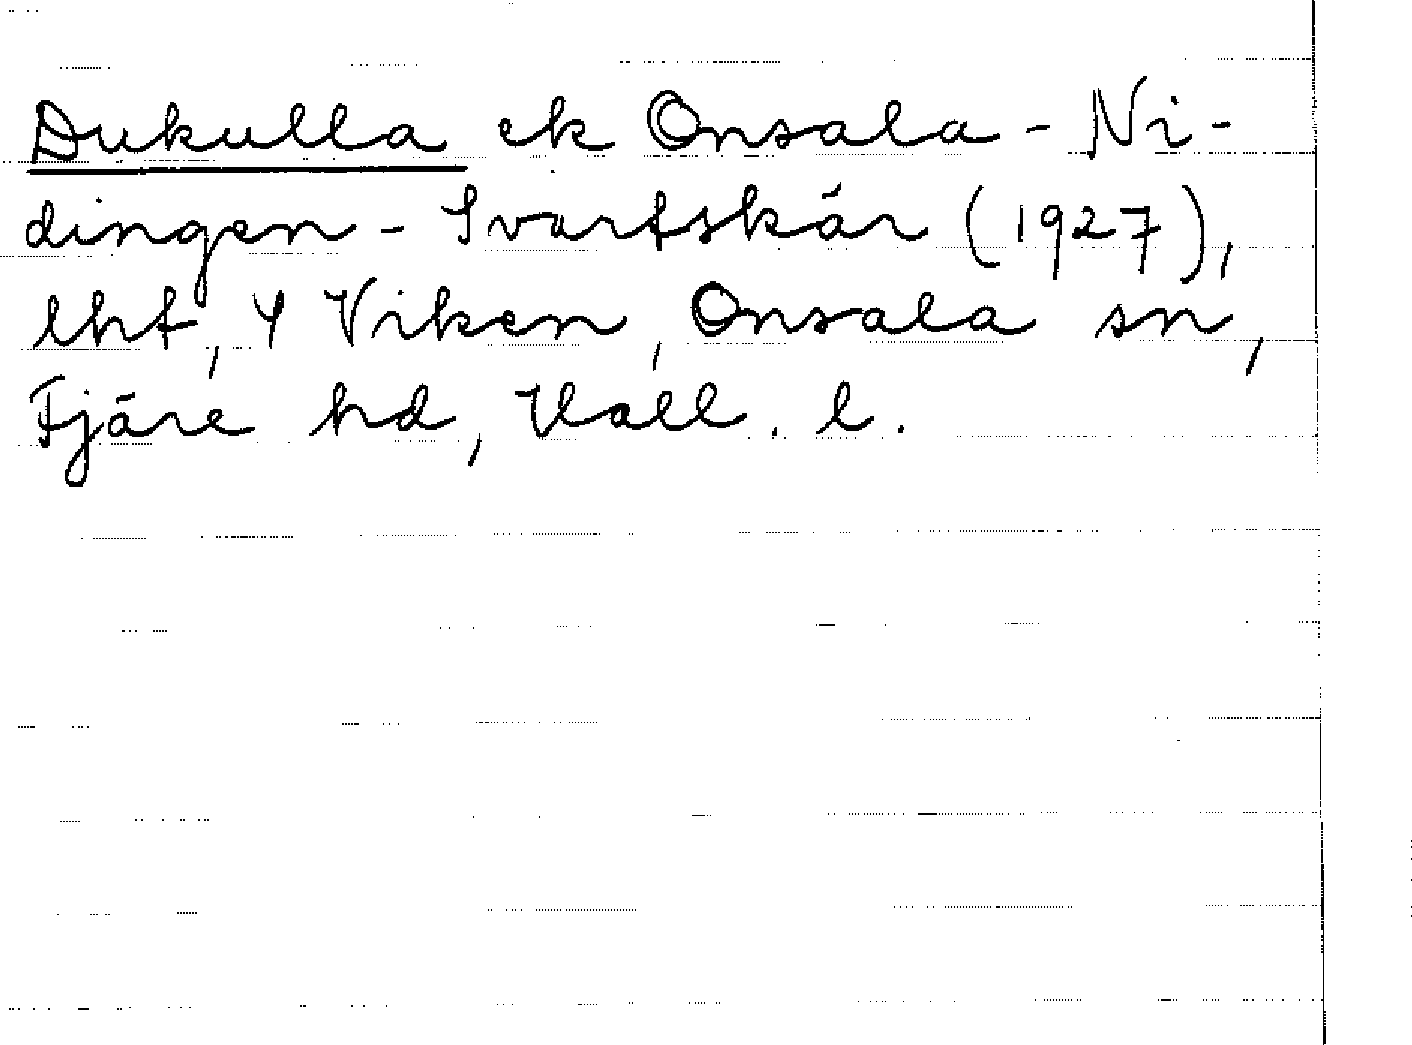 Dukulla ek Onsala - Ni-
dingen - Svartskär (1927),
lht, 4 Viken, Onsala sn,
Fjäre hd, Hall. l.